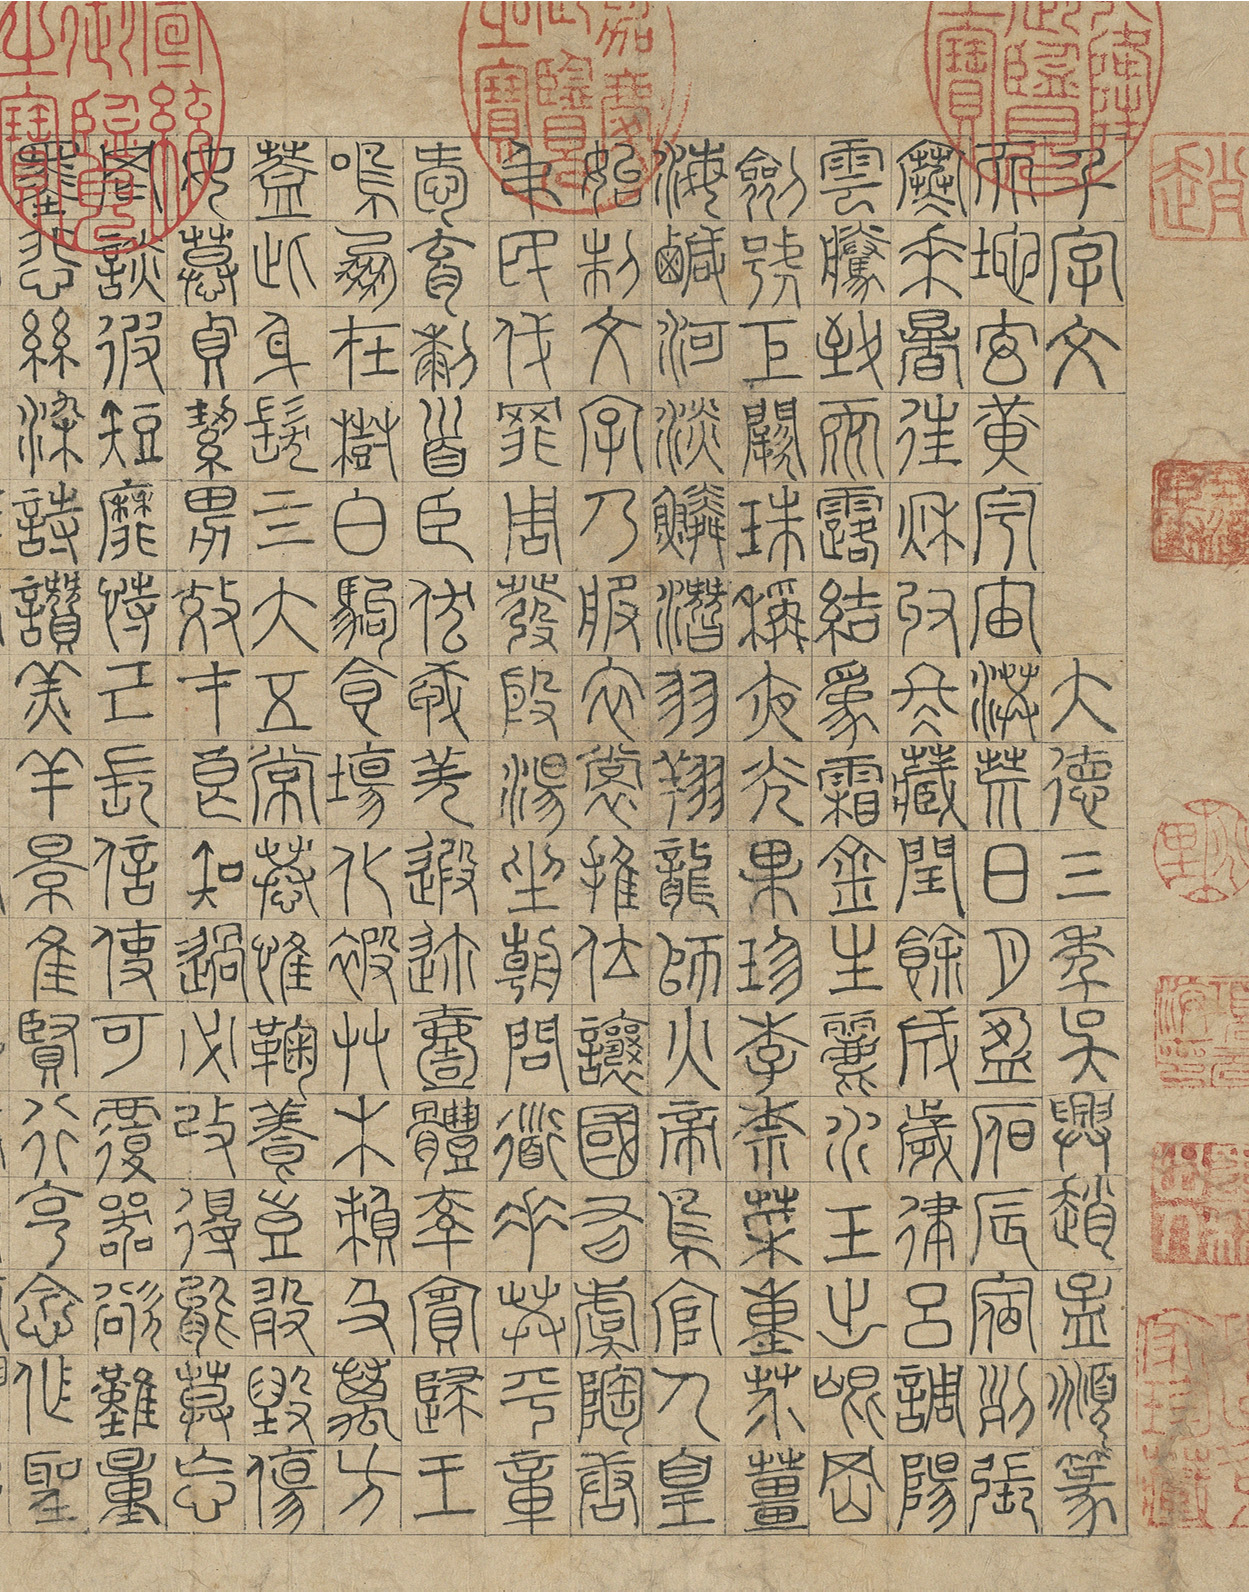 千字文 大德三年吳興趙孟頫篆
天地玄黃宇宙洪荒日月盈昃辰宿列張
寒來暑往秋收冬藏閏餘成歲律呂調陽
雲騰致雨露結為霜金生麗水玉出崐岡
劍號巨闕珠稱夜光果珍李柰菜重芥薑
海鹹河淡鱗潛羽翔龍師火帝鳥官人皇
始制文字乃服衣裳推位讓國有虞陶唐
弔民伐罪周發殷湯坐朝問道垂拱平章
愛育黎首臣伏戎羌遐邇壹體率賓歸王
鳴鳳在樹白駒食場化被草木賴及萬方
蓋此身髮四大五常恭惟鞠養豈敢毀傷
女慕貞絜男效才良知過必改得能莫忘
罔談彼短靡恃己長信使可覆器欲難量
墨悲絲染詩讚羔羊景隹賢行克念作聖
乾隆御覽之寶
嘉慶御覽之寶
宣統御覽之寶